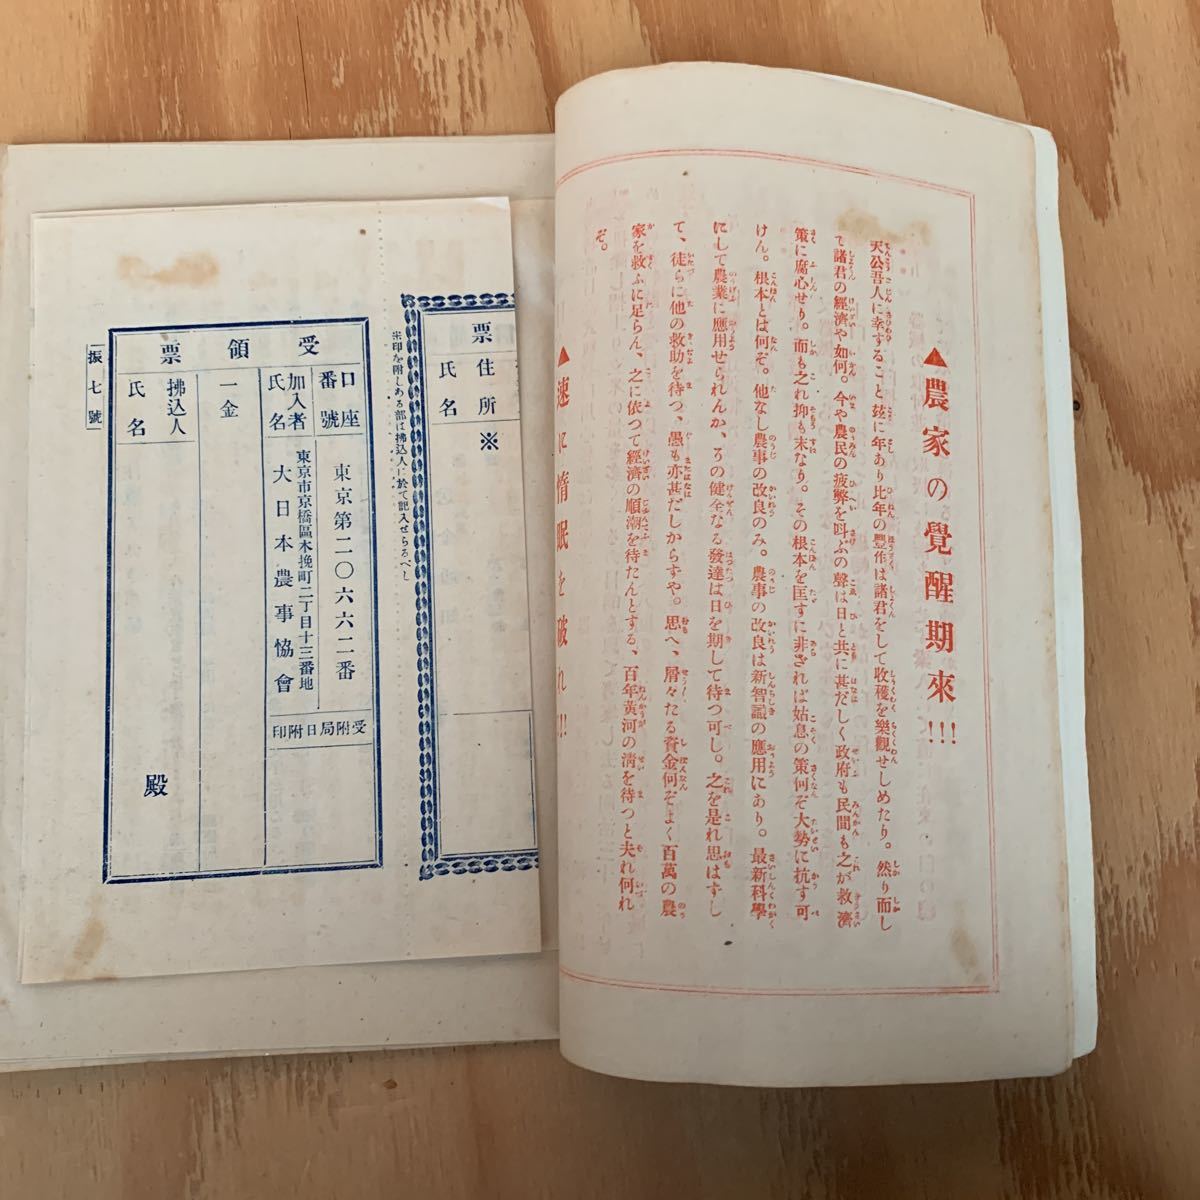 ▲農家の覺醒期來!!!
天公吾人に幸すること玆に年あり比年の豐作は諸君をして收穫を樂觀せしめたり。然り而し
て諸君の經濟や如何。今や農民の疲弊を呌ぶの聲は日と共に甚だしく政府も民間も之が救濟
策に腐心せり。而も之れ抑も末なり。その根本を匡すに非ざれば姑息の策何ぞ大勢に抗す可
けん。根本とは何ぞ。他なし農事の改良のみ。農事の改良は新智識の應用にあり。最新科學
にして農業に應用せられんか、その健全なる發達は日を期して待つ可し。之を是れ思はずし
て、徒らに他の救助を待つ、愚も亦甚だしからずや。思へ、屑々たる資金何ぞよく百萬の農
家を救ふに足らん、之に依つて經濟の順潮を待たんとする、百年黃河の淸を待つと夫れ何れ
ぞ。
▲速に惰眠を破れ!!!
票
住所
氏名
※
※印を附しある部は拂込人に於て記入せらるべし
受領票
口座番號
東京第二〇六六二番
加入者氏名
東京市京橋區木挽町二丁目十三番地
大日本農事協會
受附局日附印
一金
拂込人氏名
殿
振七號